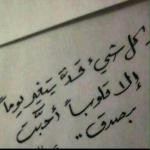 كل شيء قد يتغير يوماً
إلا قلوباً أحبّت
بصدق ..